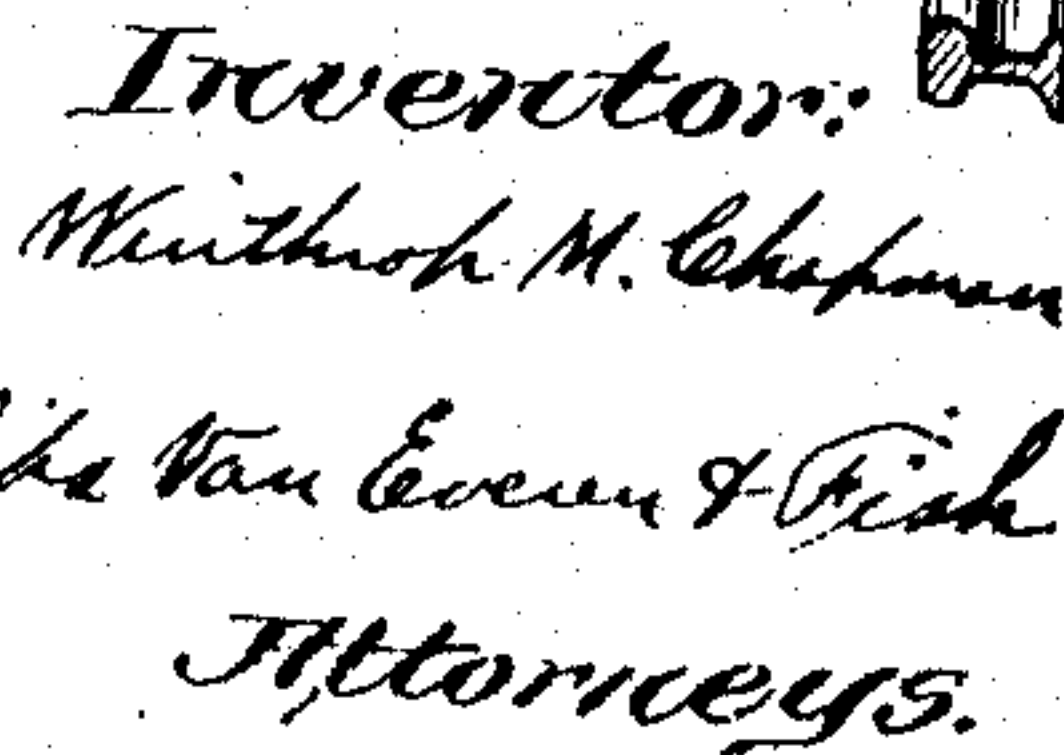 Inventor:
Winthrop M. Chapman
Van Everen & Fish
Attorneys.